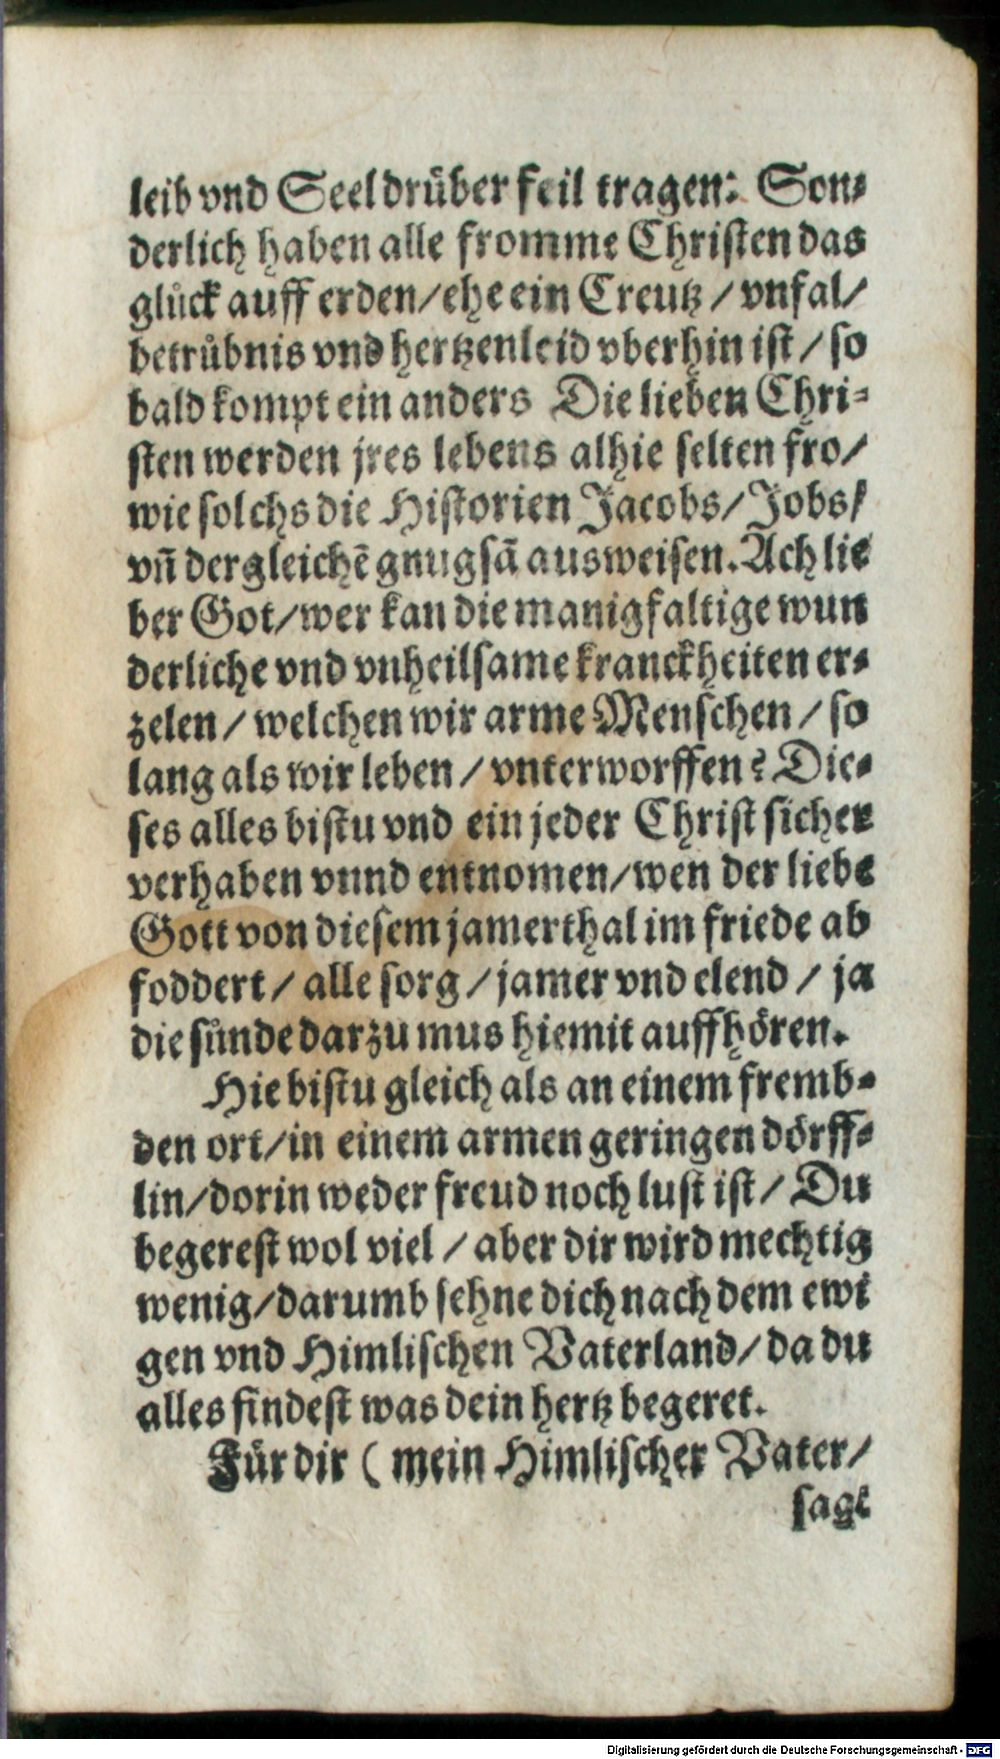 leib vnd Seel drüber feil tragen: Son-
derlich haben alle fromme Christen das
glück auff erden/ehe ein Creutz / vnfal/
betrübnis vnd hertzenleid vberhin ist / so
bald kompt ein anders Die lieben Chri-
sten werden jres lebens alhie selten fro/
wie solchs die Historien Jacobs/Jobs/
vñ dergleichẽ gnugsã ausweisen. Ach lie
ber Got/wer kan die manigfaltige wun
derliche vnd vnheilsame kranckheiten er-
zelen / welchen wir arme Menschen / so
lang als wir leben / vnterworffen? Die-
ses alles bistu vnd ein jeder Christ sicher
verhaben vnnd entnomen/wen der liebe
Gott von diesem jamerthal im friede ab
foddert / alle sorg / jamer vnd elend / ja
die sünde darzu mus hiemit auffhören.
Hie bistu gleich als an einem fremb-
den ort/in einem armen geringen dörff-
lin/dorin weder freud noch lust ist / Du
begerest wol viel / aber dir wird mechtig
wenig/darumb sehne dich nach dem ewi
gen vnd Himlischen Vaterland/da du
alles findest was dein hertz begeret.
Für dir ( mein Himlischer Vater/
sagt
Digitalisierung gefördert durch die Deutsche Forschungsgemeinschaft - DFG